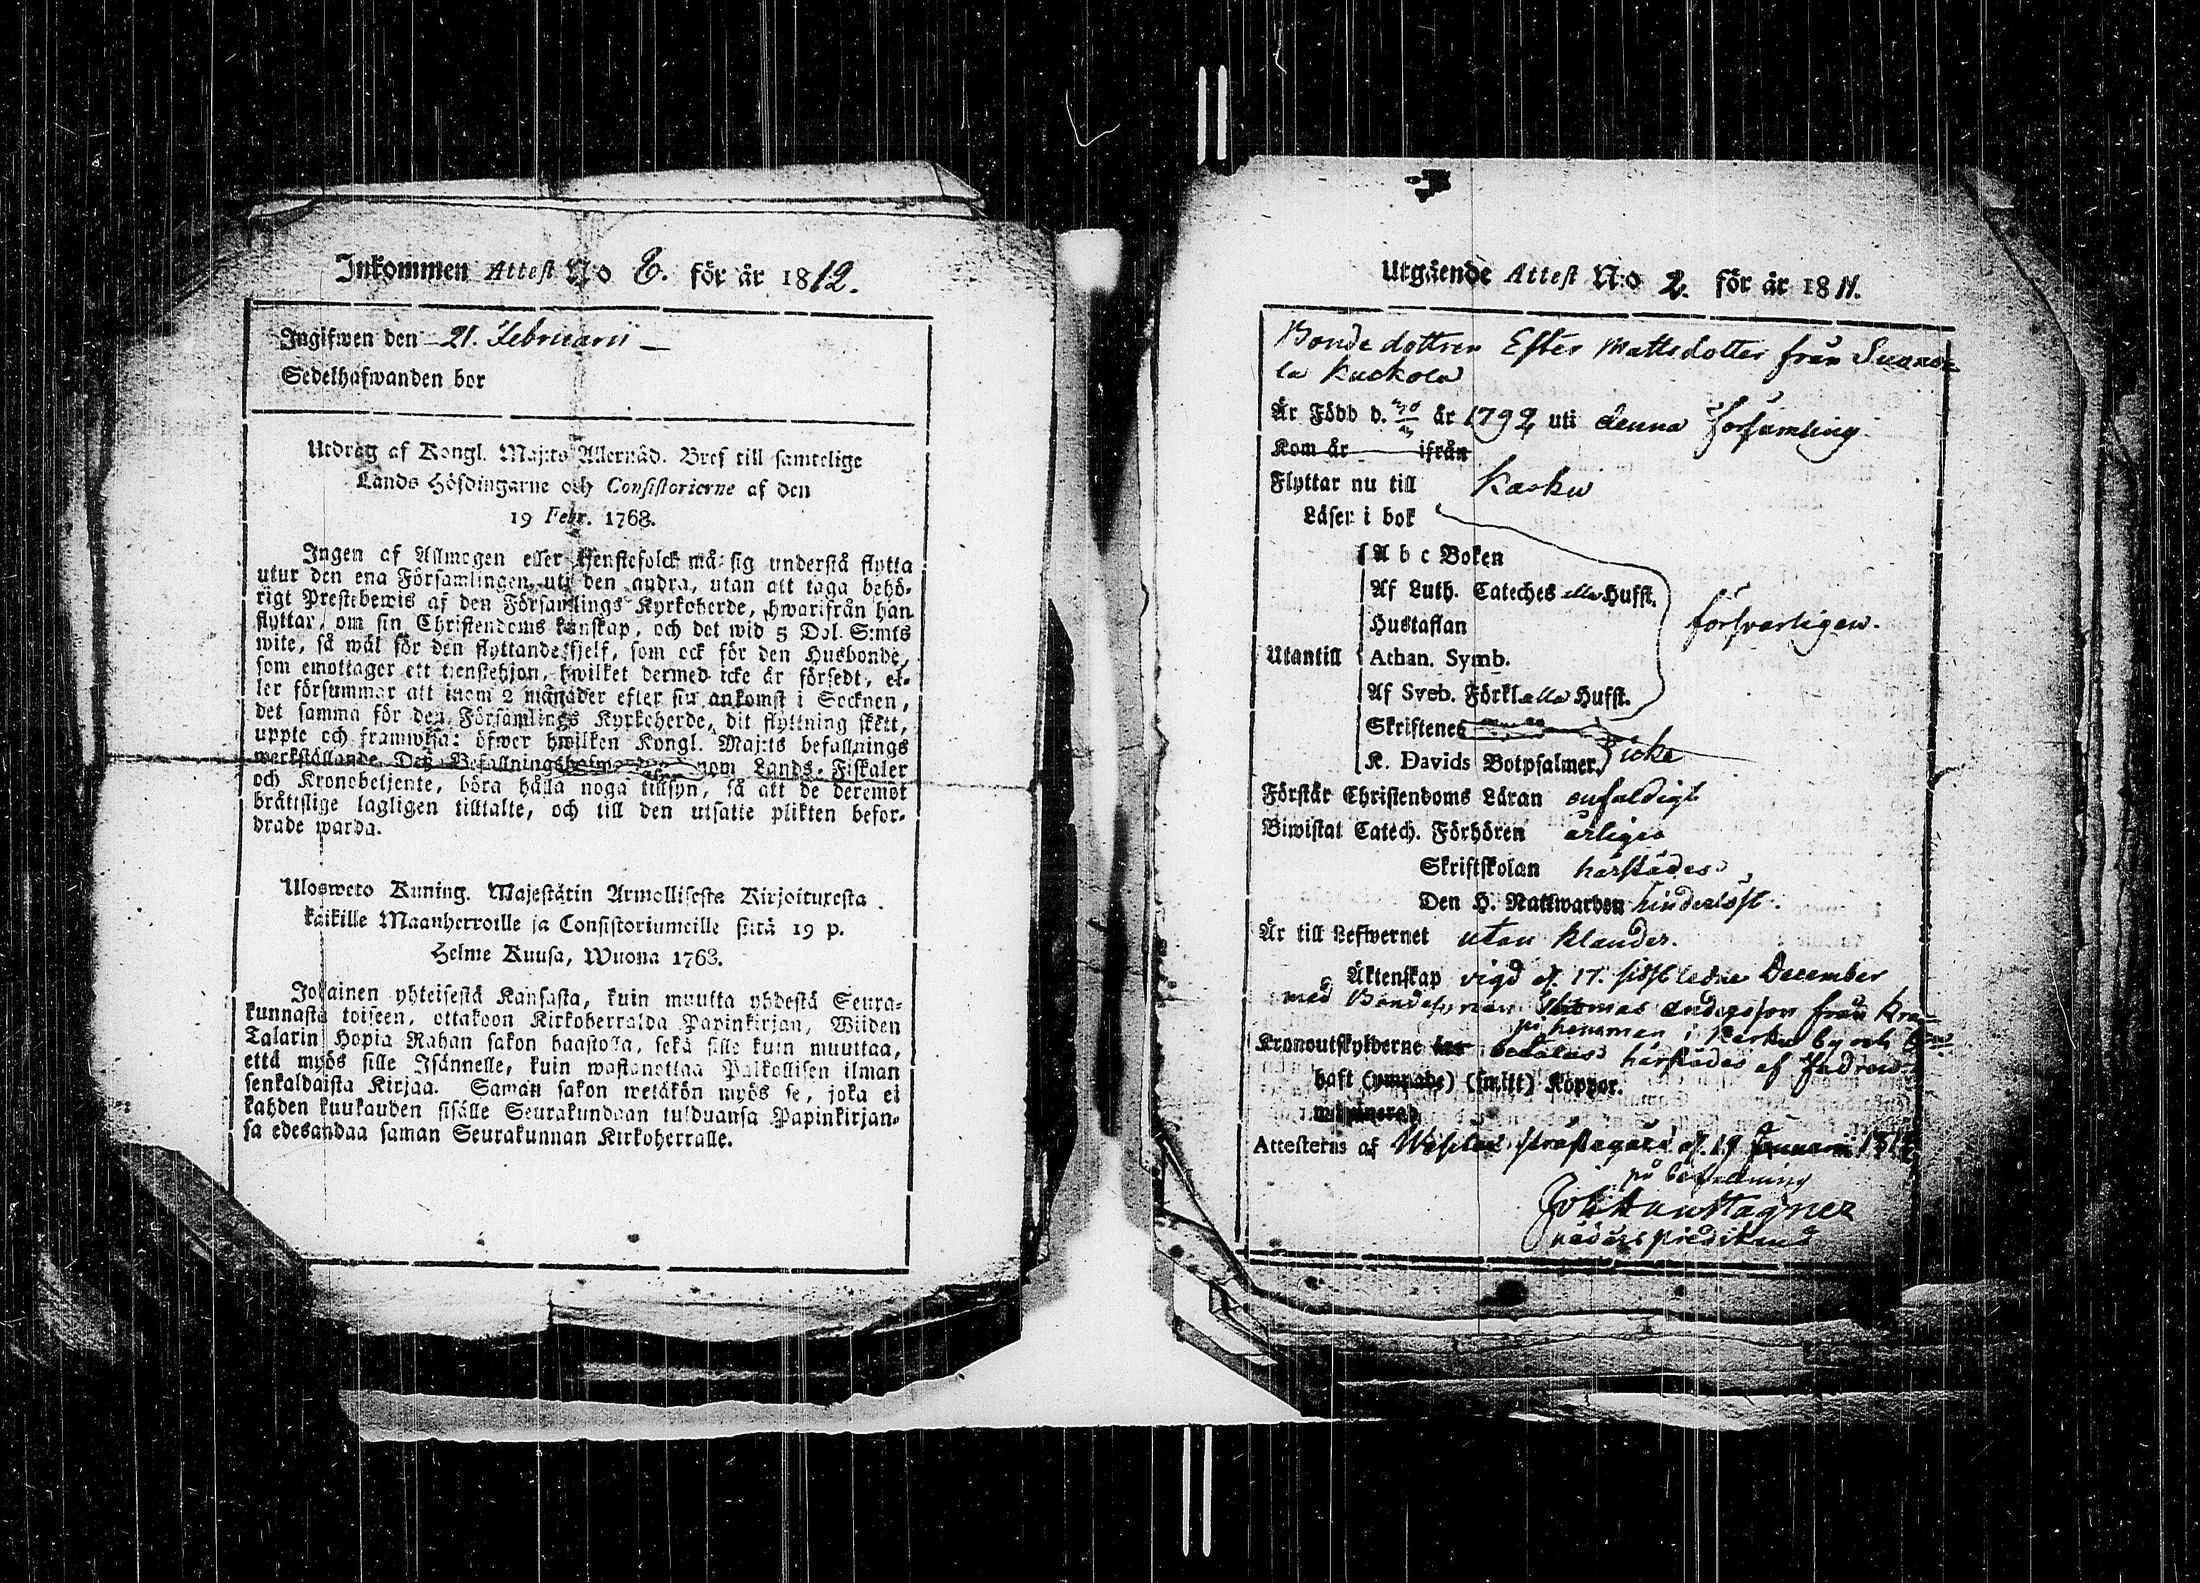 Inkommen Attest No 8. för år 1812.
Ingifwen den 21. Februarii
Sedelhafwanden bor
Utdrag af Kongl. Maj:ts Allernåd. Bref till samtelige
Lands Höfdingarne och Consistorierne af den
19 Febr. 1768.
Ingen af Allmogen eller tienstefolck må sig understå flytta
utur den ena Församlingen uti den andra, utan att taga behö-
rigt Prestebewis af den Församlings Kyrkoherde, hwarifrån han
flyttar, om sin Christendoms kunskap, och det wid 5 Dal. S:mts
wite, så wäl för den flyttande sjelf, som ock för den Husbonde,
som emottager ett tienstehjon, hwilket dermed icke är försedt, el-
ler försummar att inom 2 månader efter sin ankomst i Socknen,
det samma för den Församlings Kyrkoherde, dit flyttning skett,
uppte och framwisa: öfwer hwilken Kongl. Maj:ts befallnings
werkställande Deß Befallningshafwande genom Lands-Fiskaler
och Kronobetjente, böra hålla noga tillsyn, så att de deremot
bråttslige lagligen tilltalte, och till den utsatte plikten befor-
drade warda.
Ulosweto Kuning. Majestätin Armollisesta Kirjoituxesta
kaikille Maanherroille ja Consistoriumeille siitä 19 p.
Helme Kuusa, Wuona 1763.
Jokainen yhteisestä Kansasta, kuin muutta yhdestä Seura-
kunnasta toiseen, ottakoon Kirkoherralda Papinkirjan, Wiiden
Talarin Hopia Rahan sakon haastolla, sekä sille kuin muuttaa,
että myös sille Isännelle, kuin wastanottaa Palkollisen ilman
senkaldaista Kirjaa. Saman sakon wetäkön myös se, joka ei
kahden kuukauden sisälle Seurakundaan tulduansa Papinkirjan-
sa edesandaa saman Seurakunnan Kirkoherralle.
Utgående Attest N:o 2. för år 1811.
Bonde dottren Ester Mattsdotter från
la Kuckola
Är Född d. år 1792 uti denna församling
Kom år ifrån
Flyttar nu till Karku
Läser i bok
A b c Boken
Af Luth. Cateches eller Hufst.
Hustaflan
försvarligen.
Utantill Athan. Symb.
Af Sveb. Förkl. eller Hufst.
Skriftenes
K. Davids Botpsalmer. icke
Förstår Christendoms Läran enfaldigt
Biwistat Catech. Förhören årligen
Skriftskolan härstädes
Den H. Nattwarden hinderlöst.
Är till Lefwernet utan klander.
Äktenskap vigd d. 17. sistledne December
med Bondesonen Thomas Andersson från
hemman i Karku by och
Kronoutskylderne betalas härstädes af
haft (ympade) (smitt) Koppor.
Attesteras af d. 19 Januarii 1812
på befallning
Joh. Ant. Wagner
nådårs predikand